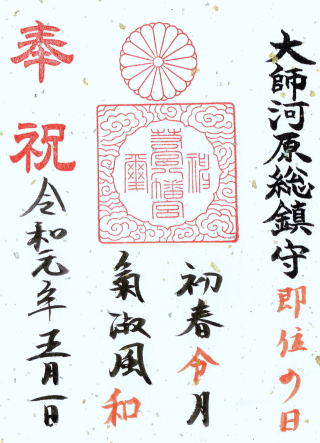 大師河原総鎮守
即位の日
初春令月
氣淑風和
奉祝
令和元年五月一日